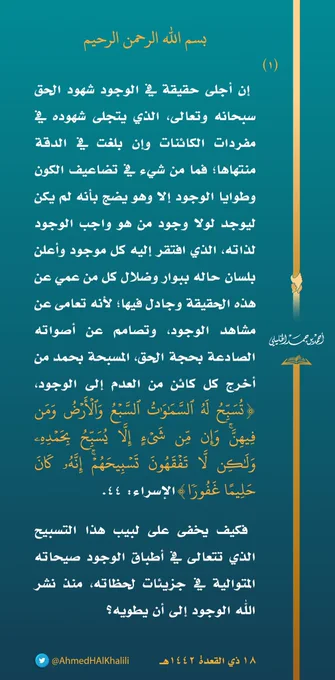 بسم الله الرحمن الرحيم
(١)
إن أجلى حقيقة في الوجود شهود الحق
سبحانه وتعالى، الذي يتجلى شهوده في
مفردات الكائنات وإن بلغت في الدقة
منتهاها؛ فما من شيء في تضاعيف الكون
وطوايا الوجود إلا وهو يضج بأنه لم يكن
ليوجد لولا وجود من هو واجب الوجود
لذاته، الذي افتقر إليه كل موجود وأعلن
بلسان حاله ببوار وضلال كل من عمي عن
هذه الحقيقة وجادل فيها؛ لأنه تعامى عن
مشاهد الوجود، وتصامم عن أصواته
الصادعة بحجة الحق، المسبحة بحمد من
أخرج كل كائن من العدم إلى الوجود،
﴿تُسَبِّحُ لَهُ ٱلسَّمَٰوَٰتُ ٱلسَّبۡعُ وَٱلۡأَرۡضُ وَمَن
فِيهِنَّۚ وَإِن مِّن شَيۡءٍ إِلَّا يُسَبِّحُ بِحَمۡدِهِۦ
وَلَٰكِن لَّا تَفۡقَهُونَ تَسۡبِيحَهُمۡۚ إِنَّهُۥ كَانَ
حَلِيمًا غَفُورٗا﴾ الإسراء: ٤٤.
فكيف يخفى على لبيب هذا التسبيح
الذي تتعالى في أطباق الوجود صيحاته
المتوالية في جزيئات لحظاته، منذ نشر
الله الوجود إلى أن يطويه؟
أحمد بن حمد الخليلي
١٨ ذي القعدة ١٤٤٢هـ
@AhmedHAlKhalili